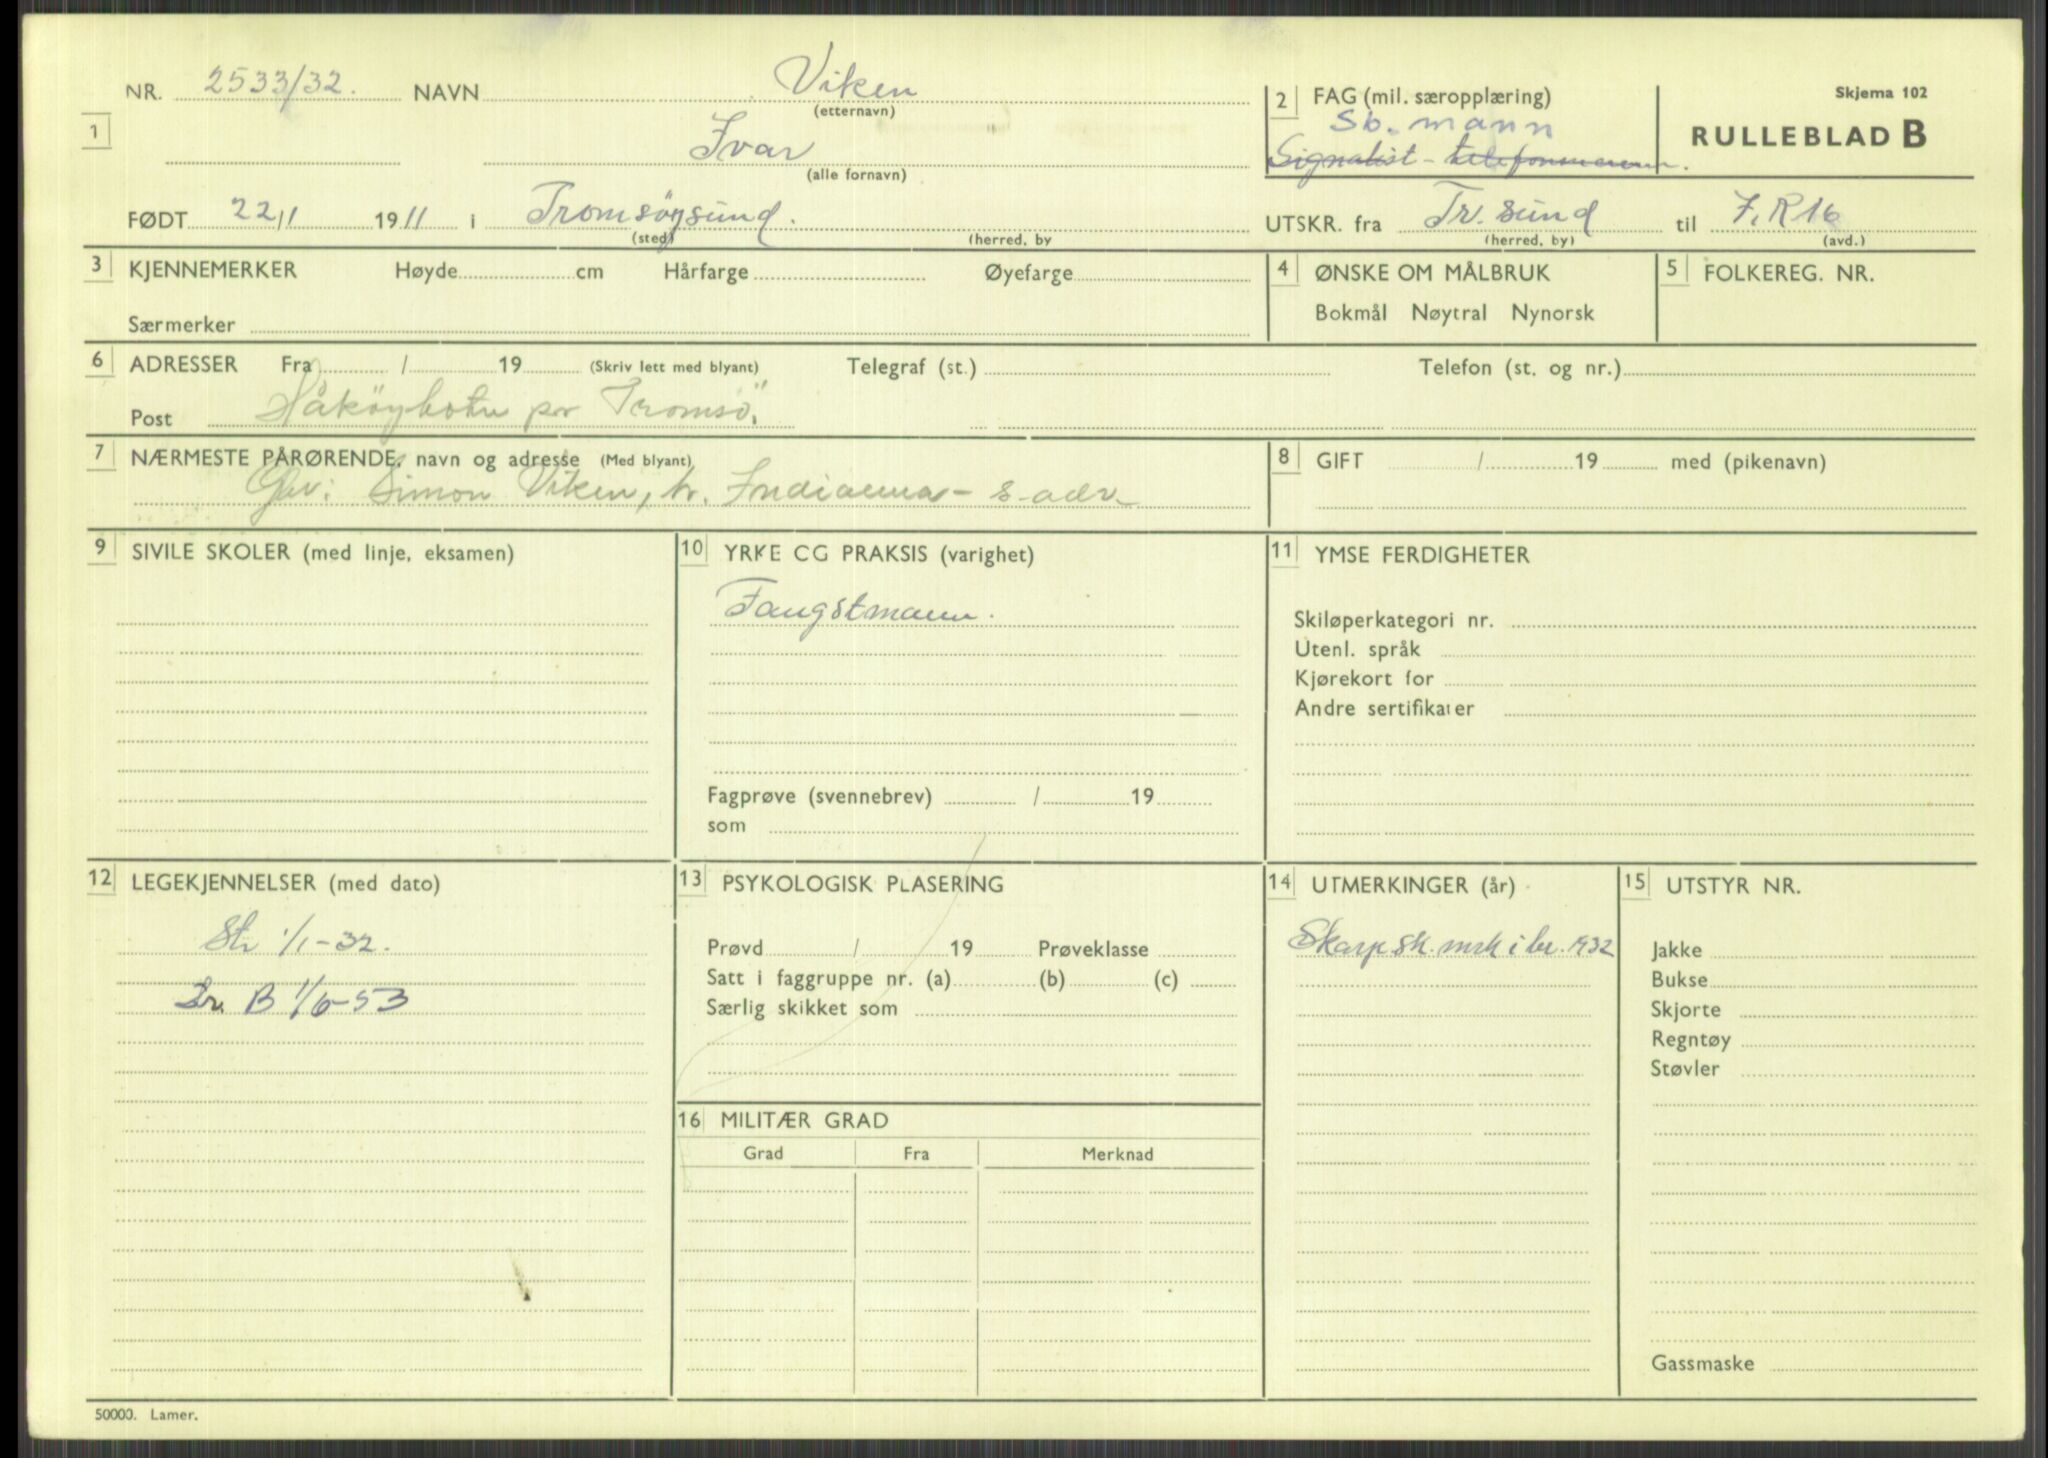 NR. 2533/32. NAVN Viken
(etternavn)
1
Ivar
(alle fornavn)
FØDT 22/1 1911 i Tromsöysund.
(sted) (herred, by
2 FAG (mil. særopplæring)
Sb. mann
Signalist - telefonmann.
Skjema 102
RULLEBLAD B
UTSKR. fra Tr. sund til I.R 16
(herred, by) (avd.)
3 KJENNEMERKER Høyde cm Hårfarge Øyefarge
Særmerker
4 ØNSKE OM MÅLBRUK
Bokmål Nøytral Nynorsk
5 FOLKEREG. NR.
6 ADRESSER Fra / 19 (Skriv lett med blyant) Telegraf (st.) Telefon (st. og nr.)
Post Håköybotn pr Tromsö.
7 NÆRMESTE PÅRØRENDE, navn og adresse (Med blyant)
Simon Viken, s. adr
8 GIFT / 19 med (pikenavn)
9 SIVILE SKOLER (med linje, eksamen)
10 YRKE CG PRAKSIS (varighet)
Fangstmann.
Fagprøve (svennebrev) / 19
som
11 YMSE FERDIGHETER
Skiløperkategori nr.
Utenl. språk
Kjørekort for
Andre sertifikater
12 LEGEKJENNELSER (med dato)
Str 1/1-32.
B 1/6-53
13 PSYKOLOGISK PLASERING
Prøvd / 19 Prøveklasse
Satt i faggruppe nr. (a) (b) (c)
Særlig skikket som
14 UTMERKINGER (år)
Skarpsk. mrk i br. 1932
15 UTSTYR NR.
Jakke
Bukse
Skjorte
Regntøy
Støvler
Gassmaske
16 MILITÆR GRAD
Grad Fra Merknad
50000. Lamer.